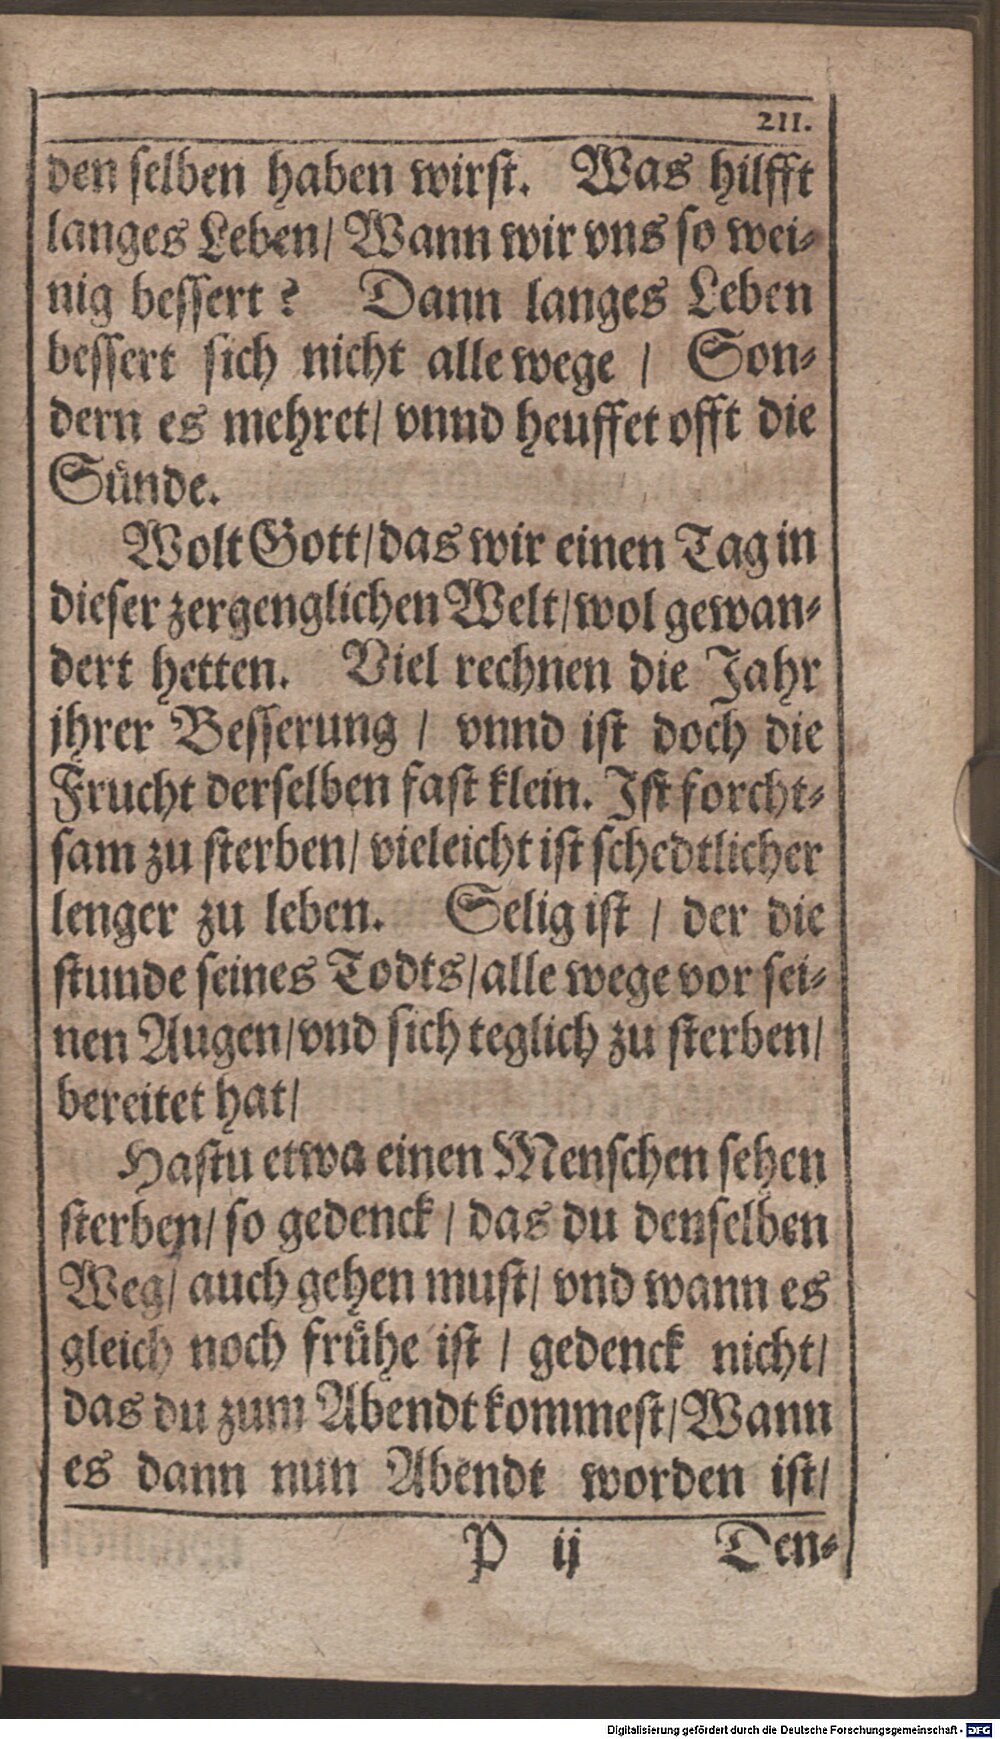 211.
den selben haben wirst. Was hilfft
langes Leben/ Wann wir vns so wei-
nig bessert? Dann langes Leben
bessert sich nicht alle wege / Son-
dern es mehret/ vnnd heuffet offt die
Sünde.
Wolt Gott/das wir einen Tag in
dieser zergenglichen Welt/wol gewan-
dert hetten. Viel rechnen die Jahr
jhrer Besserung / vnnd ist doch die
Frucht derselben fast klein. Ist forcht-
sam zu sterben/ vieleicht ist schedtlicher
lenger zu leben. Selig ist / der die
stunde seines Todts/alle wege vor sei-
nen Augen/vnd sich teglich zu sterben/
bereitet hat/
Hastu etwa einen Menschen sehen
sterben/ so gedenck / das du denselben
Weg/ auch gehen must/ vnd wann es
gleich noch frühe ist / gedenck nicht/
das du zum Abendt kommest/Wann
es dann nun Abendt worden ist/
P ij Den-
Digitalisierung gefördert durch die Deutsche Forschungsgemeinschaft - DFG